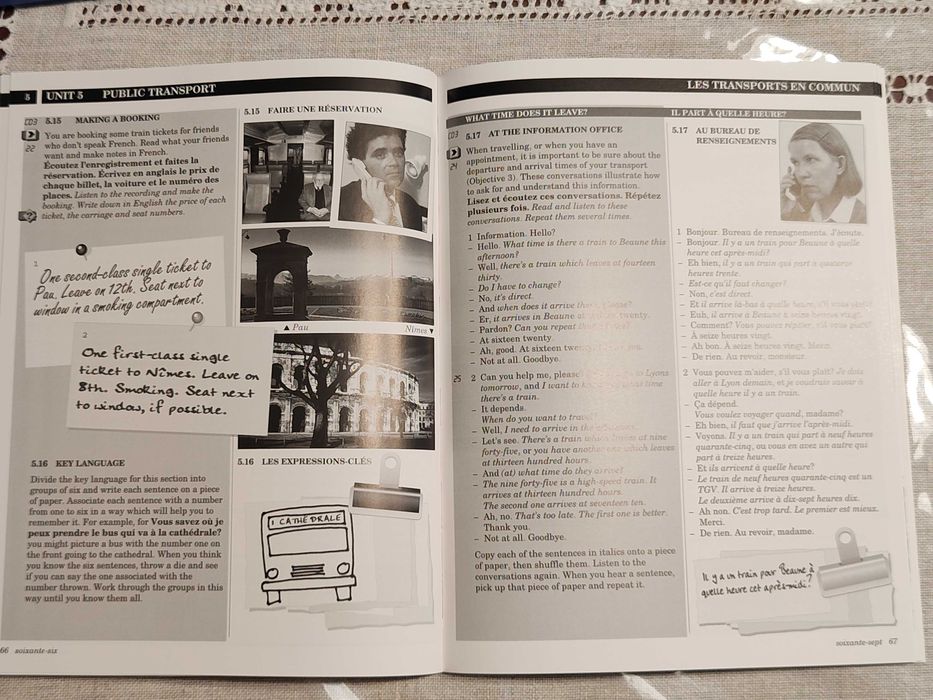 5 UNIT 5 PUBLIC TRANSPORT
CD3 5.15 MAKING A BOOKING
22
You are booking some train tickets for friends
who don't speak French. Read what your friends
want and make notes in French.
Écoutez l'enregistrement et faites la
réservation. Écrivez en anglais le prix de
chaque billet, la voiture et le numéro des
places. Listen to the recording and make the
booking. Write down in English the price of each
ticket, the carriage and seat numbers.
1
One second-class single ticket to
Pau. Leave on 12th. Seat next to
window in a smoking compartment.
2
One first-class single
ticket to Nîmes. Leave on
8th. Smoking. Seat next
to window, if possible.
5.16 KEY LANGUAGE
Divide the key language for this section into
groups of six and write each sentence on a piece
of paper. Associate each sentence with a number
from one to six in a way which will help you to
remember it. For example, for Vous savez où je
peux prendre le bus qui va à la cathédrale?
you might picture a bus with the number one on
the front going to the cathedral. When you think
you know the six sentences, throw a die and see
if you can say the one associated with the
number thrown. Work through the groups in this
way until you know them all.
66 soixante-six
5.15 FAIRE UNE RÉSERVATION
▲ Pau
Nîmes ▼
5.16 LES EXPRESSIONS-CLÉS
1 CATHÉDRALE
LES TRANSPORTS EN COMMUN
WHAT TIME DOES IT LEAVE?
CD3 5.17 AT THE INFORMATION OFFICE
24
When travelling, or when you have an
appointment, it is important to be sure about the
departure and arrival times of your transport
(Objective 3). These conversations illustrate how
to ask for and understand this information.
Lisez et écoutez ces conversations. Répétez
plusieurs fois. Read and listen to these
conversations. Repeat them several times.
1 Information. Hello?
– Hello. What time is there a train to Beaune this
afternoon?
– Well, there's a train which leaves at fourteen
thirty.
– Do I have to change?
– No, it's direct.
– And when does it arrive
– Er, it arrives in Beaune at twenty.
– Pardon? Can you repeat
– At sixteen twenty.
– Ah, good. At sixteen
– Not at all. Goodbye.
25 2 Can you help me, please to Lyons
tomorrow, and I want to time
there's a train.
– It depends.
When do you want to travel
– Well, I need to arrive in the
– Let's see. There's a train at nine
forty-five, or you have leaves
at thirteen hundred hours.
– And (at) what time do they arrive?
– The nine forty-five is a high-speed train. It
arrives at thirteen hundred hours.
The second one arrives at seventeen ten.
– Ah, no. That's too late. The first one is better.
Thank you.
– Not at all. Goodbye.
Copy each of the sentences in italics onto a piece
of paper, then shuffle them. Listen to the
conversations again. When you hear a sentence,
pick up that piece of paper and repeat it.
IL PART À QUELLE HEURE?
5.17 AU BUREAU DE
RENSEIGNEMENTS
1 Bonjour. Bureau de renseignements. J'écoute.
– Bonjour. Il y a un train pour Beaune à quelle
heure cet après-midi?
– Eh bien, il y a un train qui part à quatorze
heures trente.
– Est-ce qu'il faut changer?
– Non, c'est direct.
– Et il arrive là-bas à quelle heure, s'il vous plaît?
– Euh, il arrive à Beaune à seize heures vingt.
– Comment? Vous pouvez répéter, s'il vous plaît?
– À seize heures vingt.
– Ah bon. À seize heures vingt. Merci.
– De rien. Au revoir, monsieur.
2 Vous pouvez m'aider, s'il vous plaît? Je dois
aller à Lyon demain, et je voudrais savoir à
quelle heure il y a un train.
– Ça dépend.
Vous voulez voyager quand, madame?
– Eh bien, il faut que j'arrive l'après-midi.
– Voyons. Il y a un train qui part à neuf heures
quarante-cinq, ou vous en avez un autre qui
part à treize heures.
– Et ils arrivent à quelle heure?
– Le train de neuf heures quarante-cinq est un
TGV. Il arrive à treize heures.
Le deuxième arrive à dix-sept heures dix.
– Ah non. C'est trop tard. Le premier est mieux.
Merci.
– De rien. Au revoir, madame.
Il y a un train pour Beaune à
quelle heure cet après-midi?
soixante-sept 67